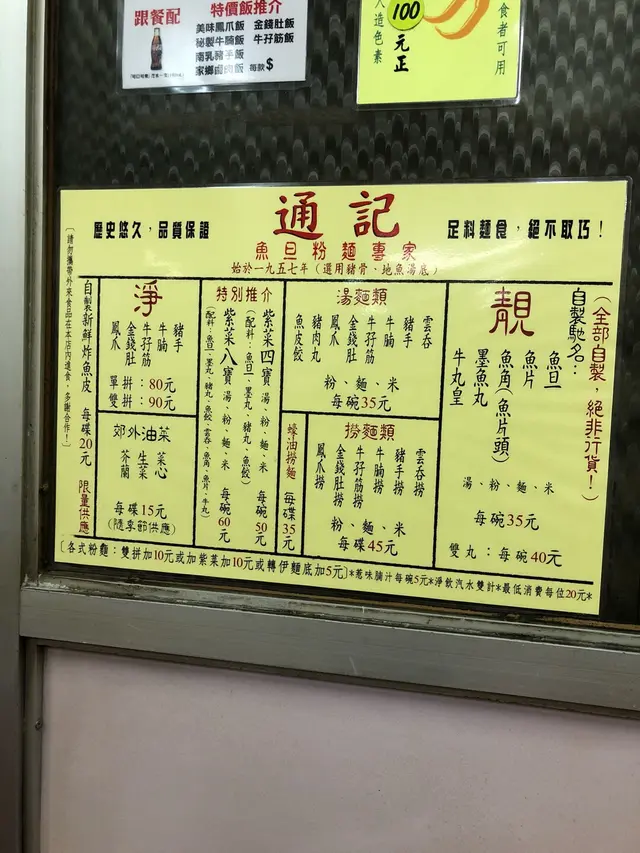 跟餐配
特價飯推介
美味鳳爪飯 金錢肚飯
秘製牛腩飯 牛孖筋飯
南乳豬手飯
家鄉鹵肉飯 每款$
人造色素
100
元正
食者可用
通記
歷史悠久，品質保證
足料麵食，絕不取巧！
魚旦粉麵專家
始於一九五七年（選用豬骨、地魚湯底）
（全部自製，絕非行貨！）
自製馳名：
靚
魚旦
魚片
魚角(魚片頭)
墨魚丸
牛丸皇
湯、粉、麵、米
每碗35元
雙丸：每碗40元
湯麵類
雲吞
豬手
牛腩
牛孖筋
金錢肚
鳳爪
豬肉丸
魚皮餃
粉、麵、米
每碗35元
撈麵類
雲吞撈
豬手撈
牛腩撈
牛孖筋撈
金錢肚撈
鳳爪撈
粉、麵、米
每碟45元
蠔油撈麵 每碟35元
特別推介
紫菜四寶 湯、粉、麵、米 每碗50元
（配料：魚旦、墨丸、豬丸、魚餃）
紫菜八寶 湯、粉、麵、米 每碗60元
（配料：魚旦、墨丸、豬丸、魚餃、雲吞、魚角、魚片、牛丸）
淨
豬手
牛腩
牛孖筋
金錢肚
鳳爪
單拼：80元
雙拼：90元
郊外油菜
菜心
生菜
芥蘭
每碟15元
(隨季節供應)
自製新鮮炸魚皮 每碟20元 限量供應
〔請勿攜帶外來食品在本店內進食，多謝合作！〕
〔各式粉麵：雙拼加10元或加紫菜加10元或轉伊麵底加5元〕*惹味腩汁每碗5元*淨飲汽水雙計*最低消費每位20元*